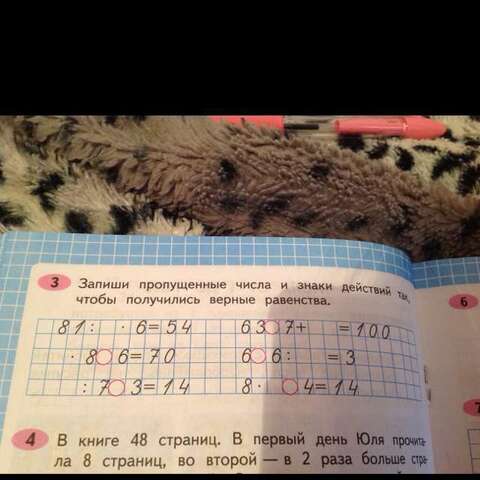 3 Запиши пропущенные числа и знаки действий так,
чтобы получились верные равенства.
81: · 6=54 63○7+ =100
· 8○6=70 6○6: =3
: 7○3=14 8· ○4=14
6
4 В книге 48 страниц. В первый день Юля прочита-
ла 8 страниц, во второй — в 2 раза больше стра-
7